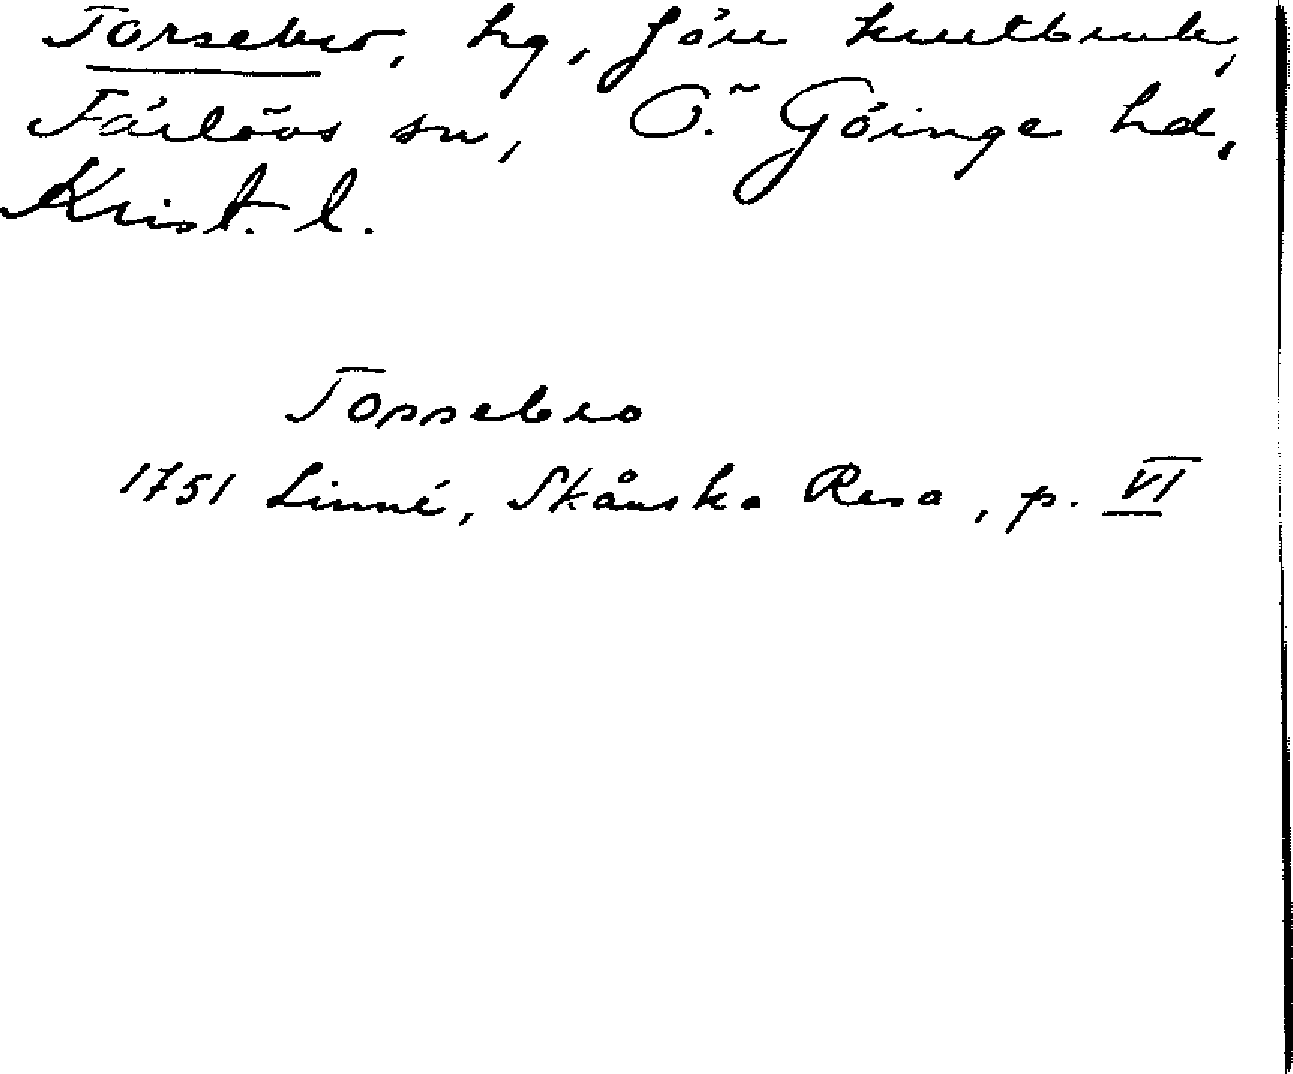 Torsebro, hg, förr krutbruk,
Färlövs sn, Ö. Göinge hd,
Krist. l.
Tossebro
1751 Linné, Skånska Resa, p. VI